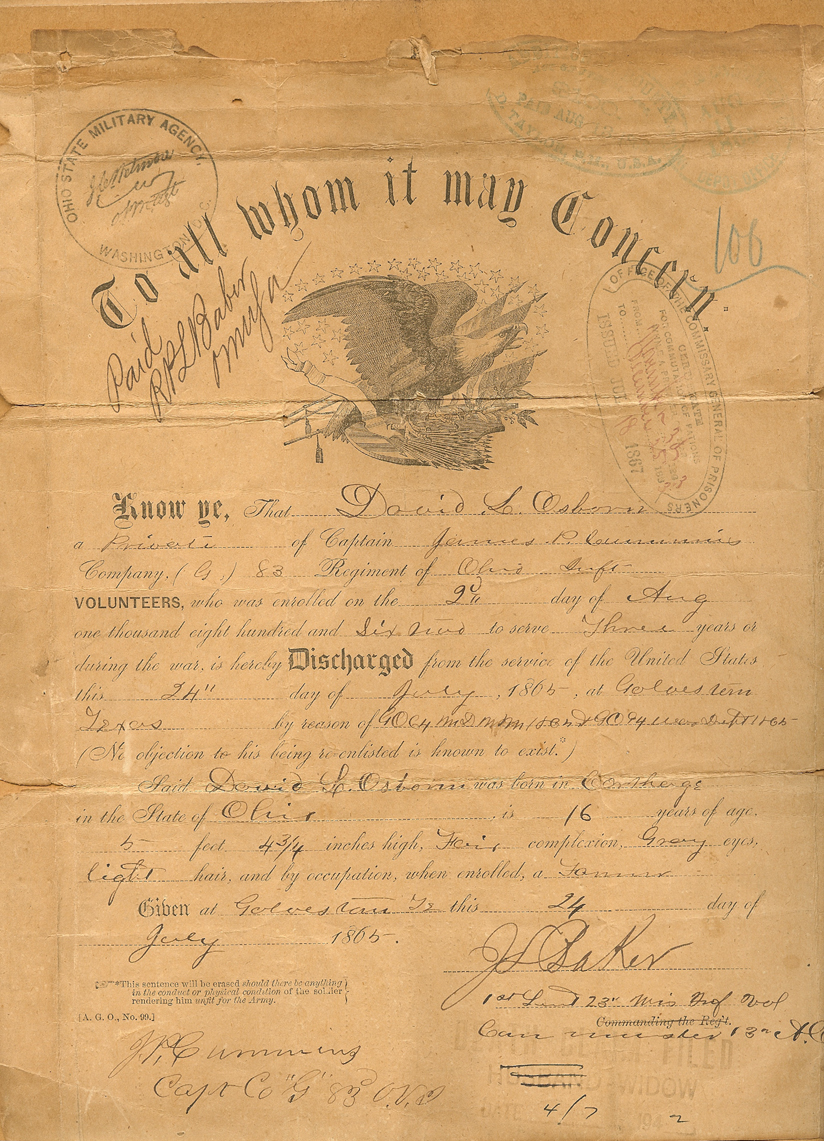 OHIO STATE MILITARY AGENCY,
WASHINGTON, D.C.
To all whom it may Concern:
106
Paid
Baber
OFFICE OF THE COMMISSARY GENERAL OF PRISONERS
CERTIFICATE
FOR COMMUTATION OF RATIONS
FROM
TO
ISSUED JUL 1867
Know ye, That David L. Osborn
a Private of Captain James P. Cummins
Company, (G.) 83 Regiment of Ohio Inft
VOLUNTEERS, who was enrolled on the 2d day of Aug
one thousand eight hundred and Six two to serve Three years or
during the war, is hereby Discharged from the service of the United States
this 24" day of July, 1865, at Galvestern
Texas by reason of
(No objection to his being re-enlisted is known to exist.*)
Said David L. Osborn was born in Carthage
in the State of Ohio, is 16 years of age,
5 feet 4 3/4 inches high, Fair complexion, Gray eyes,
light hair, and by occupation, when enrolled, a Farmer
Given at Galvestern Tx this 24 day of
July 1865.
J Baker
*This sentence will be erased should there be anything
in the conduct or physical condition of the soldier
rendering him unfit for the Army.
1st Lieut 23d Wis Inf Vol
[A. G. O., No. 99.]
Commanding the Reg't.
J.P. Cummins
Capt Co "G" 83d O.V.
FILED
HUSBAND WIDOW
DATE 4/7 194 2